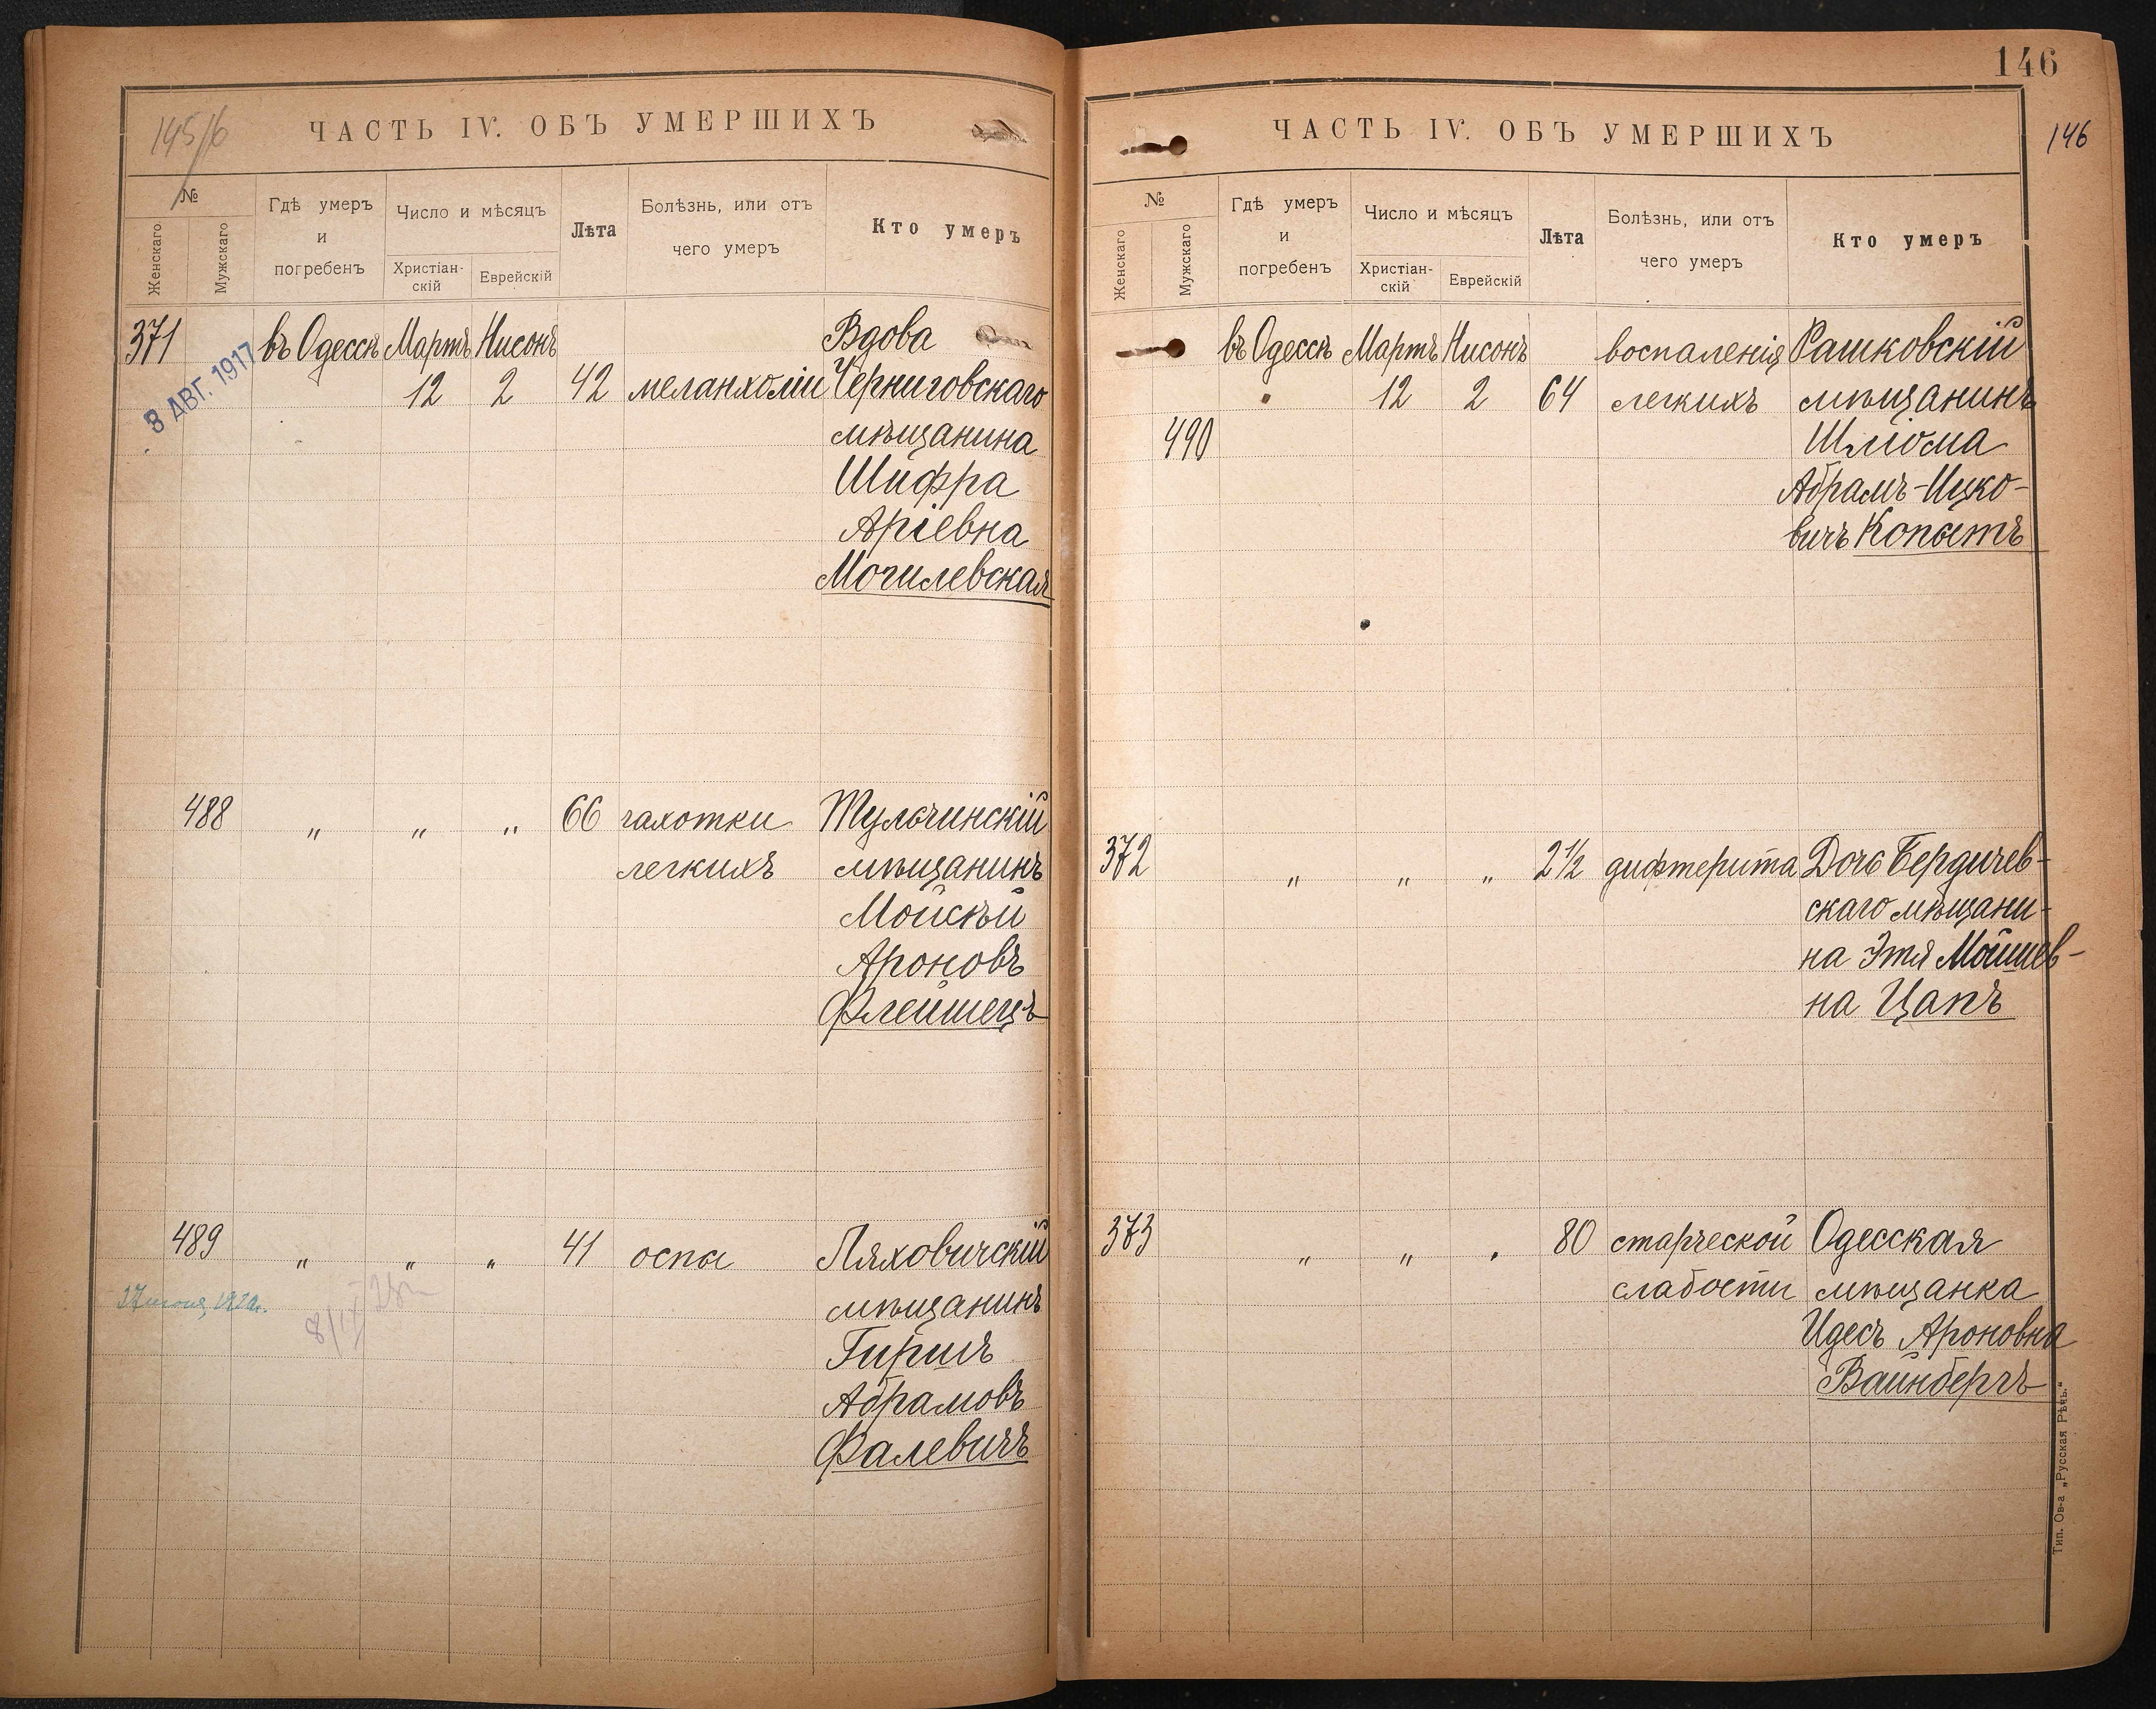 145/6
ЧАСТЬ IV. ОБЪ УМЕРШИХЪ
№
Женскаго
Мужскаго
Гдѣ умеръ
и
погребенъ
Число и мѣсяцъ
Христіан-
скій
Еврейскій
Лѣта
Болѣзнь, или отъ
чего умеръ
Кто умеръ
371 въ Одессѣ Мартъ Нисонъ Вдова
8 АВГ. 1917
12 2 42 меланхоліи Черниговскаго
мѣщанина
Шифра
Аріевна
Могилевская
488 " " " 66 чахотки Тульчинскій
легкихъ мѣщанинъ
Мойсѣй
Ароновъ
Флейшецъ
489 " " " 41 оспы Ляховичскій
мѣщанинъ
Гиршъ
Абрамовъ
Фалевичъ
146
146
ЧАСТЬ IV. ОБЪ УМЕРШИХЪ
№
Женскаго
Мужскаго
Гдѣ умеръ
и
погребенъ
Число и мѣсяцъ
Христіан-
скій
Еврейскій
Лѣта
Болѣзнь, или отъ
чего умеръ
Кто умеръ
въ Одессѣ Мартъ Нисонъ воспаленія Рашковскій
12 2 64 легкихъ мѣщанинъ
490 Шліома
Абрамъ-Ицко-
вичъ Копытъ
372 " " " 2½ дифтерита Дочь Бердичев-
скаго мѣщани-
на Этя Мойшев-
на Цапъ
373 " " " 80 старческой Одесская
слабости мѣщанка
Идесъ Ароновна
Вайнбергъ
Тип. Ов-а „Русская Рѣчь."